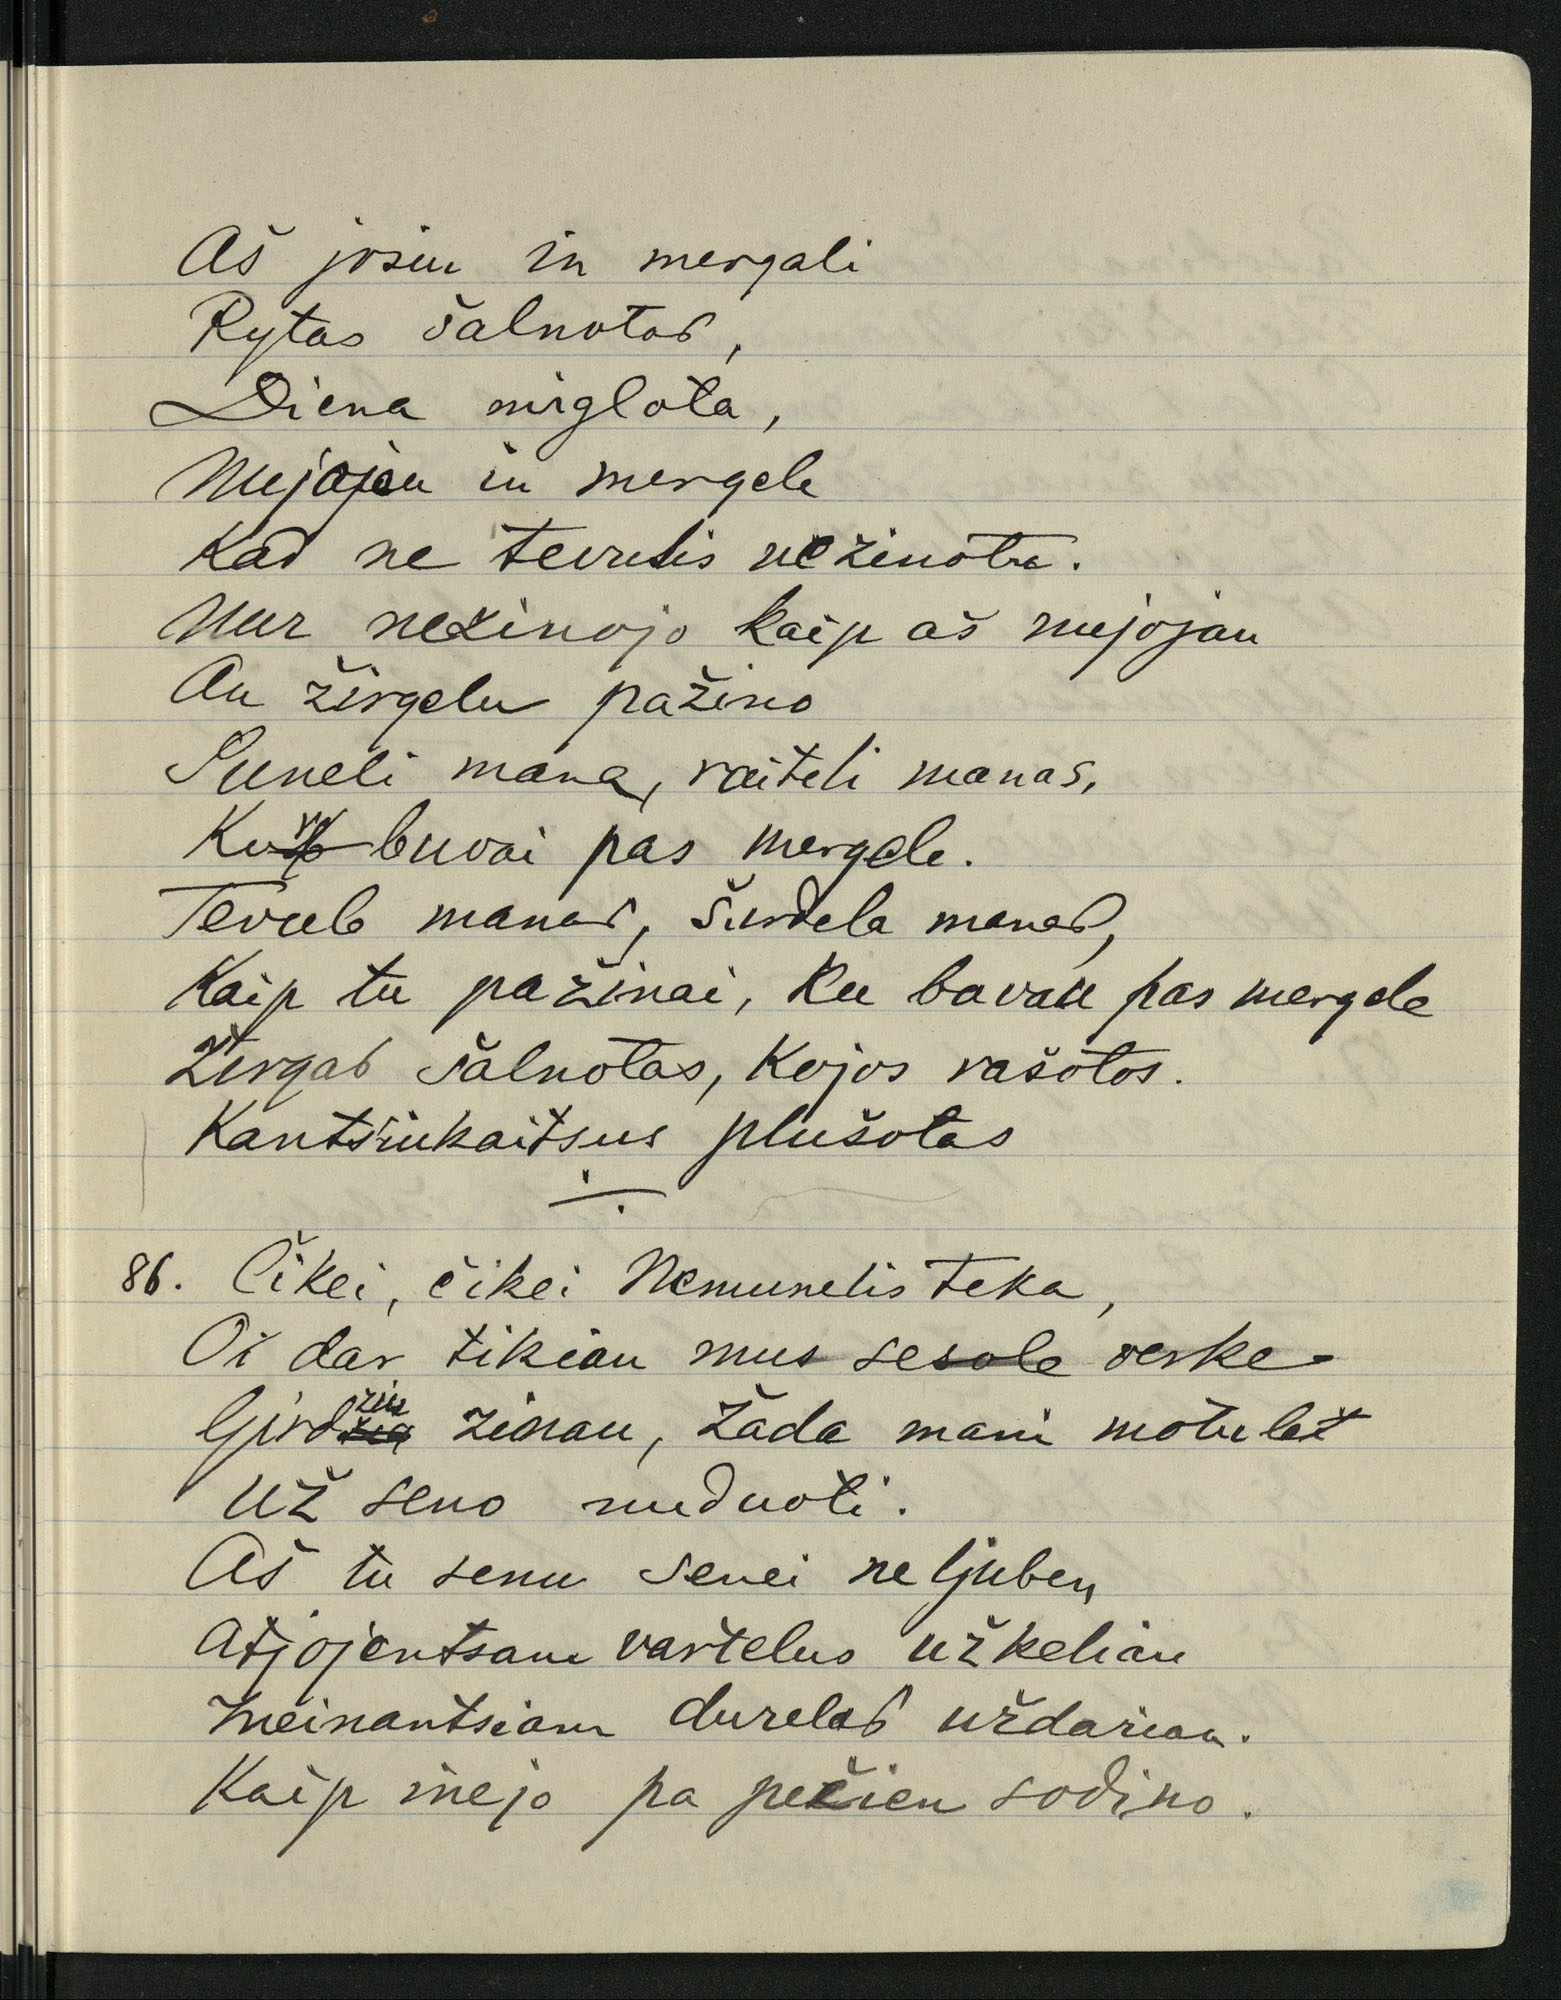 Aš josiu in mergali
Rytas šalnotas,
Diena miglota,
Nujojau in mergele
Kad ne tevulis nežinotu.
Nur nežinojo kaip aš nujojau
An žirgelu pažino
Suneli mana, raiteli manas,
Kur buvai pas mergele.
Tevule manas, širdela manas,
Kaip tu pažinai, ku bavau pas mergele
Žirgas šalnotas, Kojos rašotos.
Kantšiukaitsus plušotas
86. Čikei, čikei Nemunelis teka,
Oi dar tikiau mus sesole verke
Girdžiu žinau, žada mani motulet
Už seno nuduoti.
Aš tu senu senei ne ljuben
Atjojentsam vartelus užkeliau
Ineinantsiam durelas uždariau.
Kaip inejo pa pečien sodino.